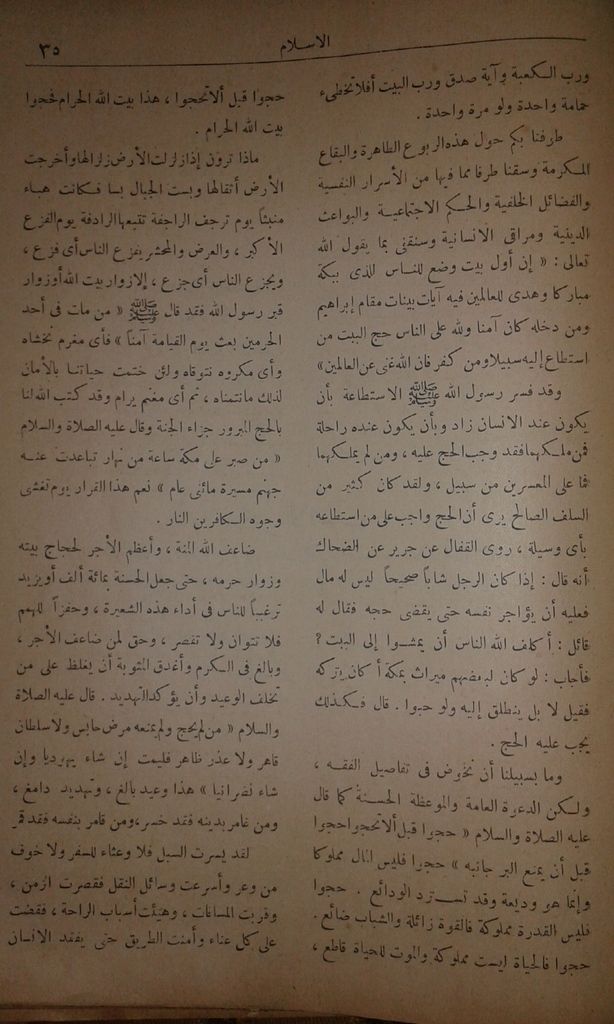 الاسلام
٣٥
ورب الكعبة وآية صدق ورب البيت أفلا تخطىء
حمامة واحدة ولو مرة واحدة .
طرفنا بكم حول هذه الربوع الطاهرة والبقاع
المكرمة وسقنا طرفا مما فيها من الأسرار النفسية
والفضائل الخلقية والحكم الاجتماعية والبواعث
الدينية ومراقى الانسانية وسنقفى بما يقول الله
تعالى : « إن أول بيت وضع للناس للذى ببكة
مباركا وهدى للعالمين فيه آيات بينات مقام إبراهيم
ومن دخله كان آمنا ولله على الناس حج البيت من
استطاع إليه سبيلا ومن كفر فان الله غنى عن العالمين »
وقد فسر رسول الله ﷺ الاستطاعة بأن
يكون عند الانسان زاد وبأن يكون عنده راحلة
فمن ملكهما فقد وجب الحج عليه ، ومن لم يملكهما
فما على المعسرين من سبيل ، ولقد كان كثير من
السلف الصالح يرى أن الحج واجب على من استطاعه
بأى وسيلة ، روى القفال عن جرير عن الضحاك
أنه قال : إذا كان الرجل شابا صحيحاً ليس له مال
فعليه أن يؤاجر نفسه حتى يقضى حجه فقال له
قائل : أكلف الله الناس أن يمشوا إلى البيت ؟
فأجاب : لو كان لبعضهم ميراث بمكة أكان يتركه
فقيل لا بل ينطلق إليه ولو حبوا . قال فكذلك
يجب عليه الحج .
وما بسبيلنا أن نخوض فى تفاصيل الفقه ،
ولكن الدعوة العامة والموعظة الحسنة كما قال
عليه الصلاة والسلام « حجوا قبل ألا تحجوا حجوا
قبل أن يمنع البر جانبه » حجوا فليس المال مملوكا
وإنما هو وديعة وقد تسترد الودائع . حجوا
فليس القدرة مملوكة فالقوة زائلة والشباب ضائع .
حجوا فالحياة ليست مملوكة والموت للحياة قاطع ،
حجوا قبل ألا تحجوا ، هذا بيت الله الحرام فحجوا
بيت الله الحرام .
ماذا ترون إذا زلزلت الأرض زلزالها وأخرجت
الأرض أثقالها وبست الجبال بسا فكانت هباء
منبثا يوم ترجف الراجفة تتبعها الرادفة يوم الفزع
الأكبر ، والعرض والمحشر يفزع الناس أى فزع ،
ويجزع الناس أى جزع ، إلا زوار بيت الله أو زوار
قبر رسول الله فقد قال ﷺ « من مات فى أحد
الحرمين بعث يوم القيامة آمناً » فأى مغرم نخشاه
وأى مكروه نتوقاه ولئن ختمت حياتنا بالأمان
لذلك ما نتمناه ، ثم أى مغنم يرام وقد كتب الله لنا
بالحج المبرور جزاء الجنة وقال عليه الصلاة والسلام
« من صبر على مكة ساعة من نهار تباعدت عنه
جهنم مسيرة مائتى عام » نعم هذا القرار يوم تغشى
وجوه الكافرين النار .
ضاعف الله المنة ، وأعظم الأجر لحجاج بيته
وزوار حرمه ، حتى جعل الحسنة بمائة ألف أو يزيد
ترغيباً للناس فى أداء هذه الشعيرة ، وحفزاً للهمم
فلا تتوان ولا تقصر ، وحق لمن ضاعف الأجر ،
وبالغ فى الكرم وأغدق المثوبة أن يغلظ على من
تخلف الوعيد وأن يؤكد التهديد . قال عليه الصلاة
والسلام « من لم يحج ولم يمنعه مرض حابس ولا سلطان
قاهر ولا عذر ظاهر فليمت إن شاء يهوديا وإن
شاء نصرانيا » هذا وعيد بالغ ، وتهديد دامغ ،
ومن غامر بدينه فقد خسر ، ومن قامر بنفسه فقد قمر
لقد يسرت السبل فلا وعثاء للسفر ولا خوف
من وعر وأسرعت وسائل النقل فقصرت الزمن ،
وقربت المسافات ، وهيئت أسباب الراحة ، فقضت
على كل عناء وأمنت الطريق حتى يفقد الانسان